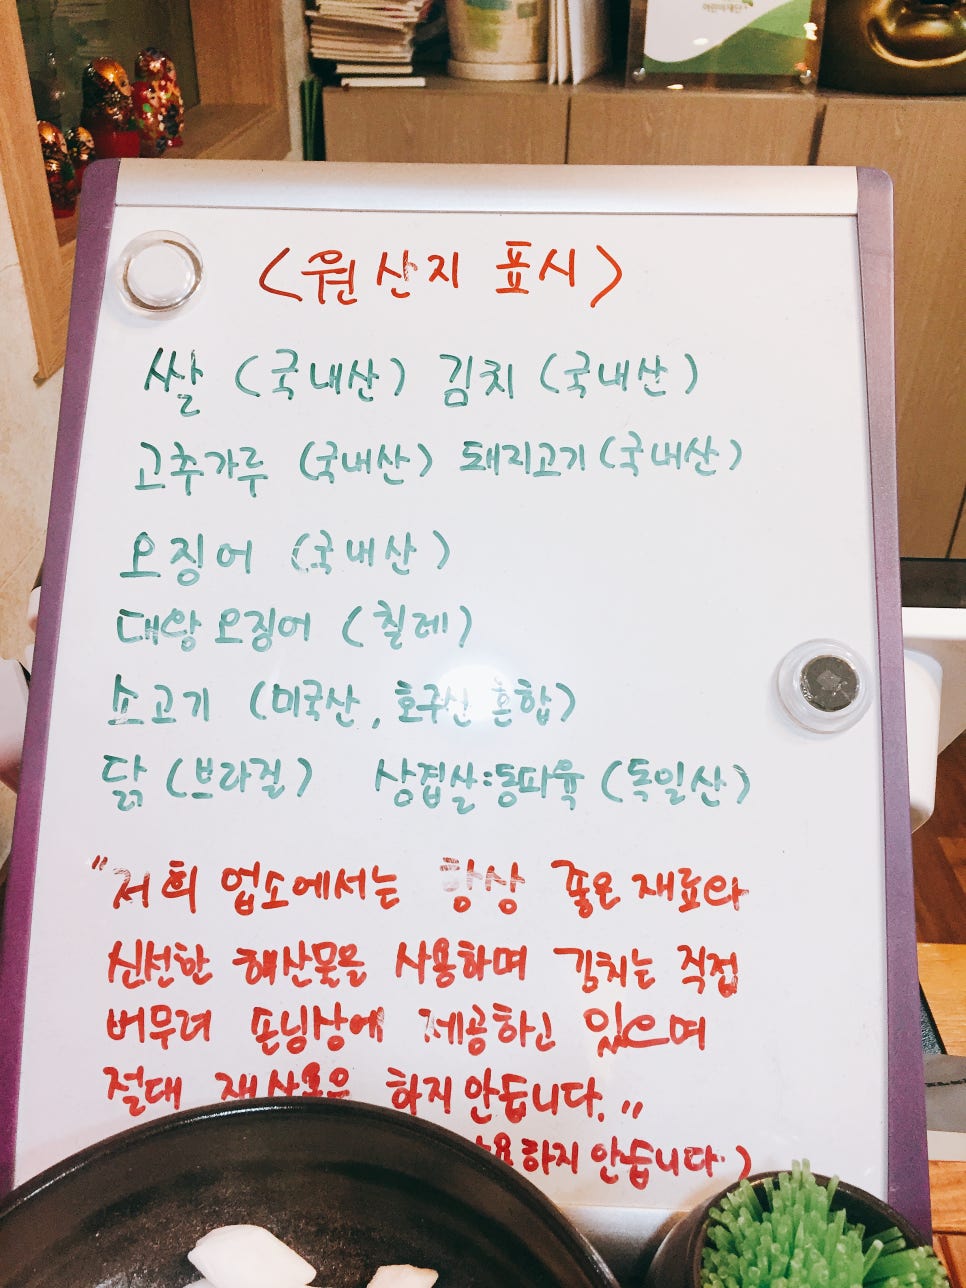 어린이재단
<원산지 표시>
쌀 (국내산) 김치 (국내산)
고추가루 (국내산) 돼지고기 (국내산)
오징어 (국내산)
대왕오징어 (칠레)
소고기 (미국산, 호주산 혼합)
닭 (브라질) 삼겹살:통파육 (독일산)
"저희 업소에서는 항상 좋은 재료와
신선한 해산물을 사용하며 김치는 직접
버무려 손님상에 제공하고 있으며
절대 재사용은 하지 안습니다."
하지 안습니다.)